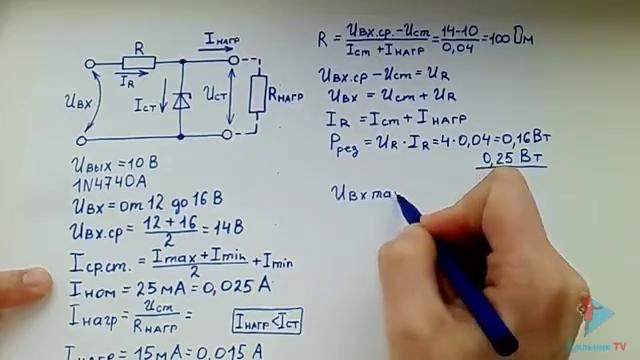 R
Iнагр
IR
Uвх
Iст
Uст
Rнагр
Uвых = 10 В
1N4740A
Uвх = от 12 до 16 В
Uвх.ср = 12 + 16 / 2 = 14 В
Iср.ст. = Imax + Imin / 2 + Imin
Iном = 25 мА = 0,025 А
Iнагр = Uст / Rнагр =
Iнагр < Iст
Iнагр = 15 мА = 0,015 А
R = Uвх.ср. - Uст / Iст + Iнагр = 14 - 10 / 0,04 = 100 Ом
Uвх.ср - Uст = UR
Uвх = Uст + UR
IR = Iст + Iнагр
Pрез = UR · IR = 4 · 0,04 = 0,16 Вт
0,25 Вт
Uвх max
TV